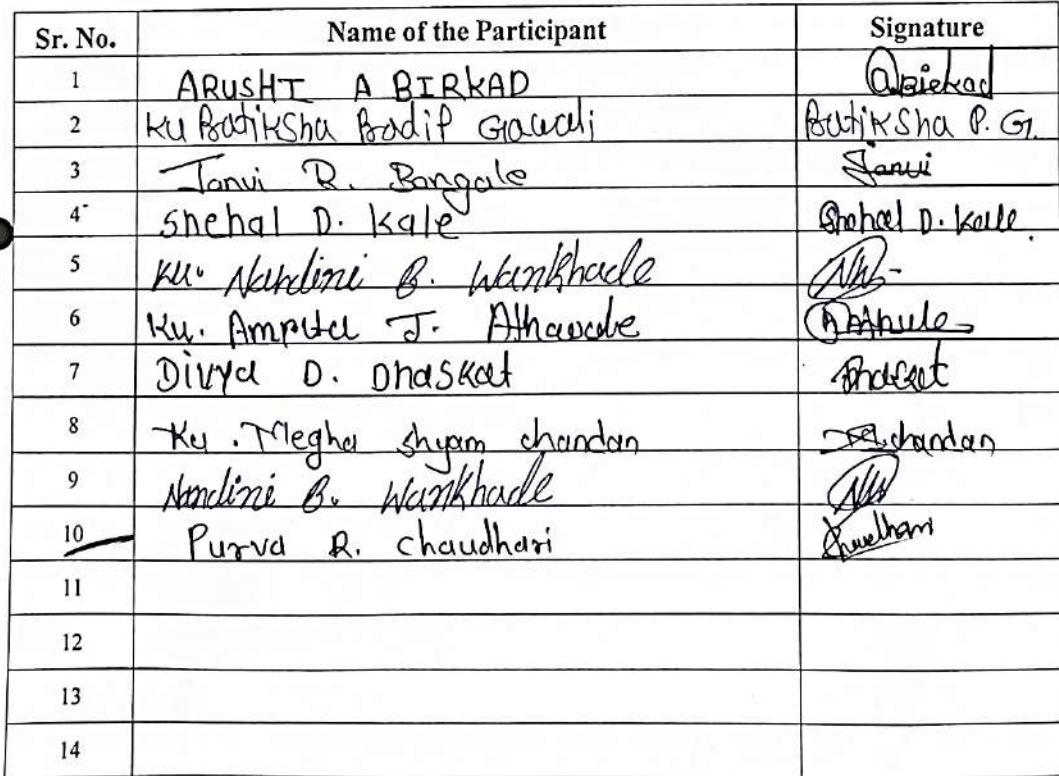 Sr. No. Name of the Participant Signature
1 ARUSHI A BIRKAD ABirkad
2 Ku Pratiksha Pradip Gawali Pratiksha P. G.
3 Janvi R. Bangale Janvi
4 Snehal D. Kale Snehal D. Kale.
5 Ku. Nandini B. Wankhade NW
6 Ku. Amruta J. Athawale
7 Divya D. Dhaskat
8 Ku. Megha shyam chandan chandan
9 Nandini B. Wankhade NW
10 Purva R. chaudhari
11
12
13
14